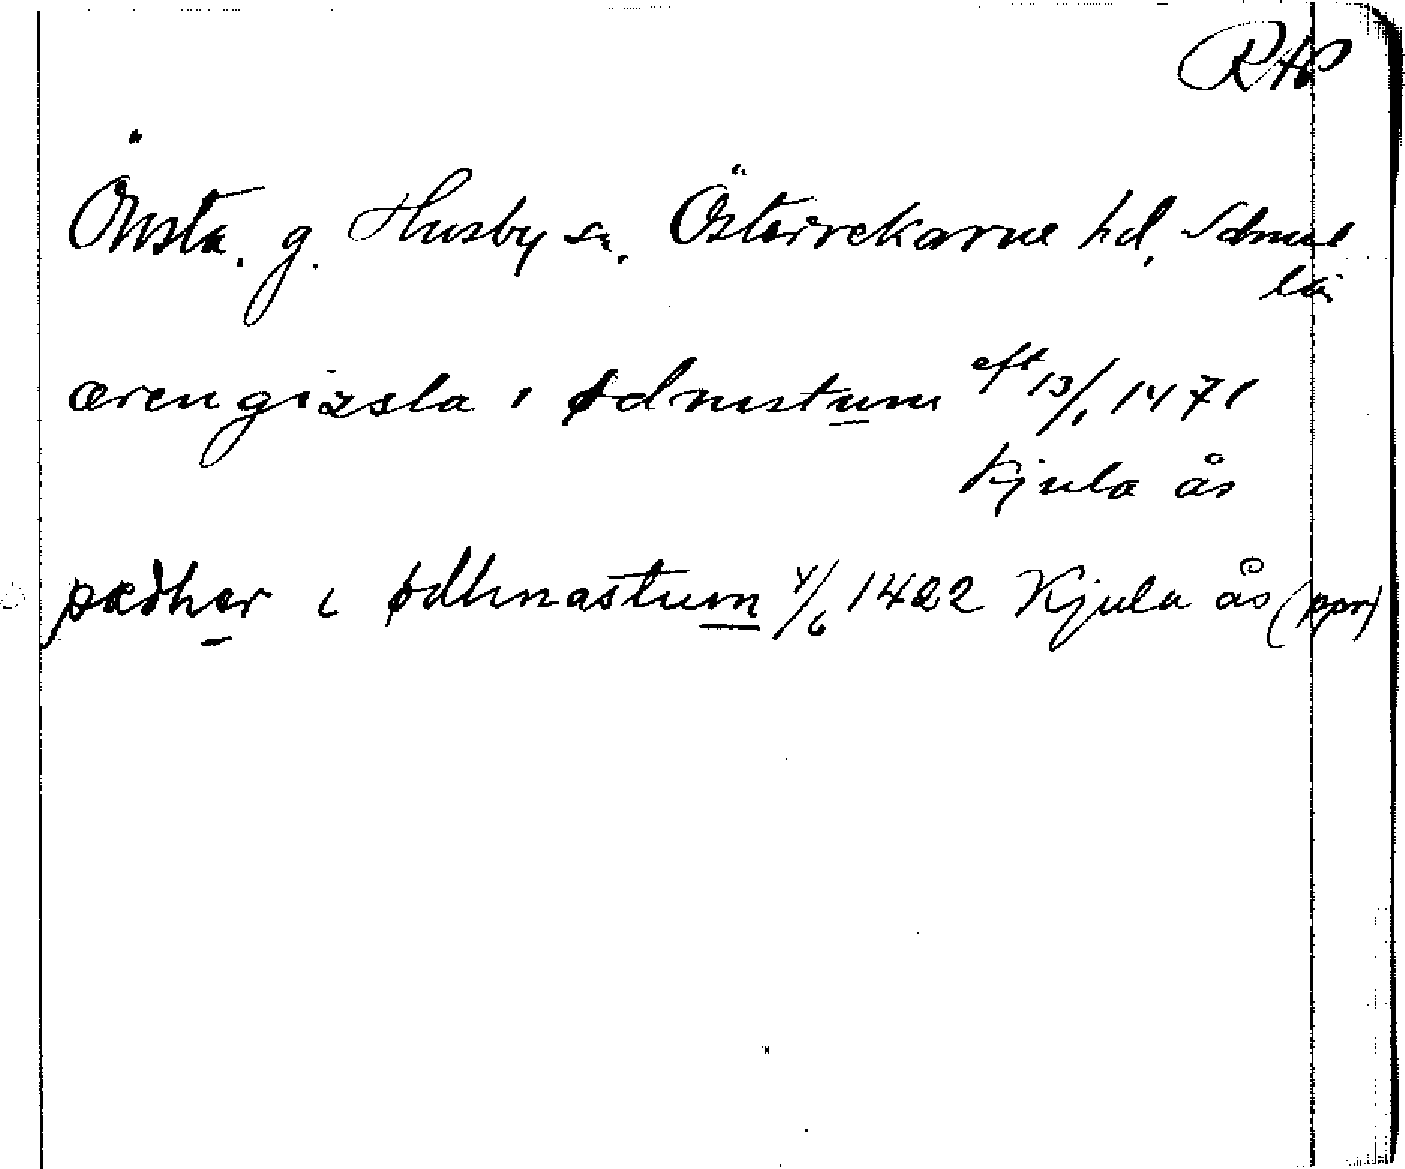 RAP
Önsta. g. Husby sn. Österrekarne hd, Sdmnl
län
ærengizsla i ødnestum eft 13/1 1471
Kjula ås
pædhar i ødhnastum 4/6 1422 Kjula ås (ppr)